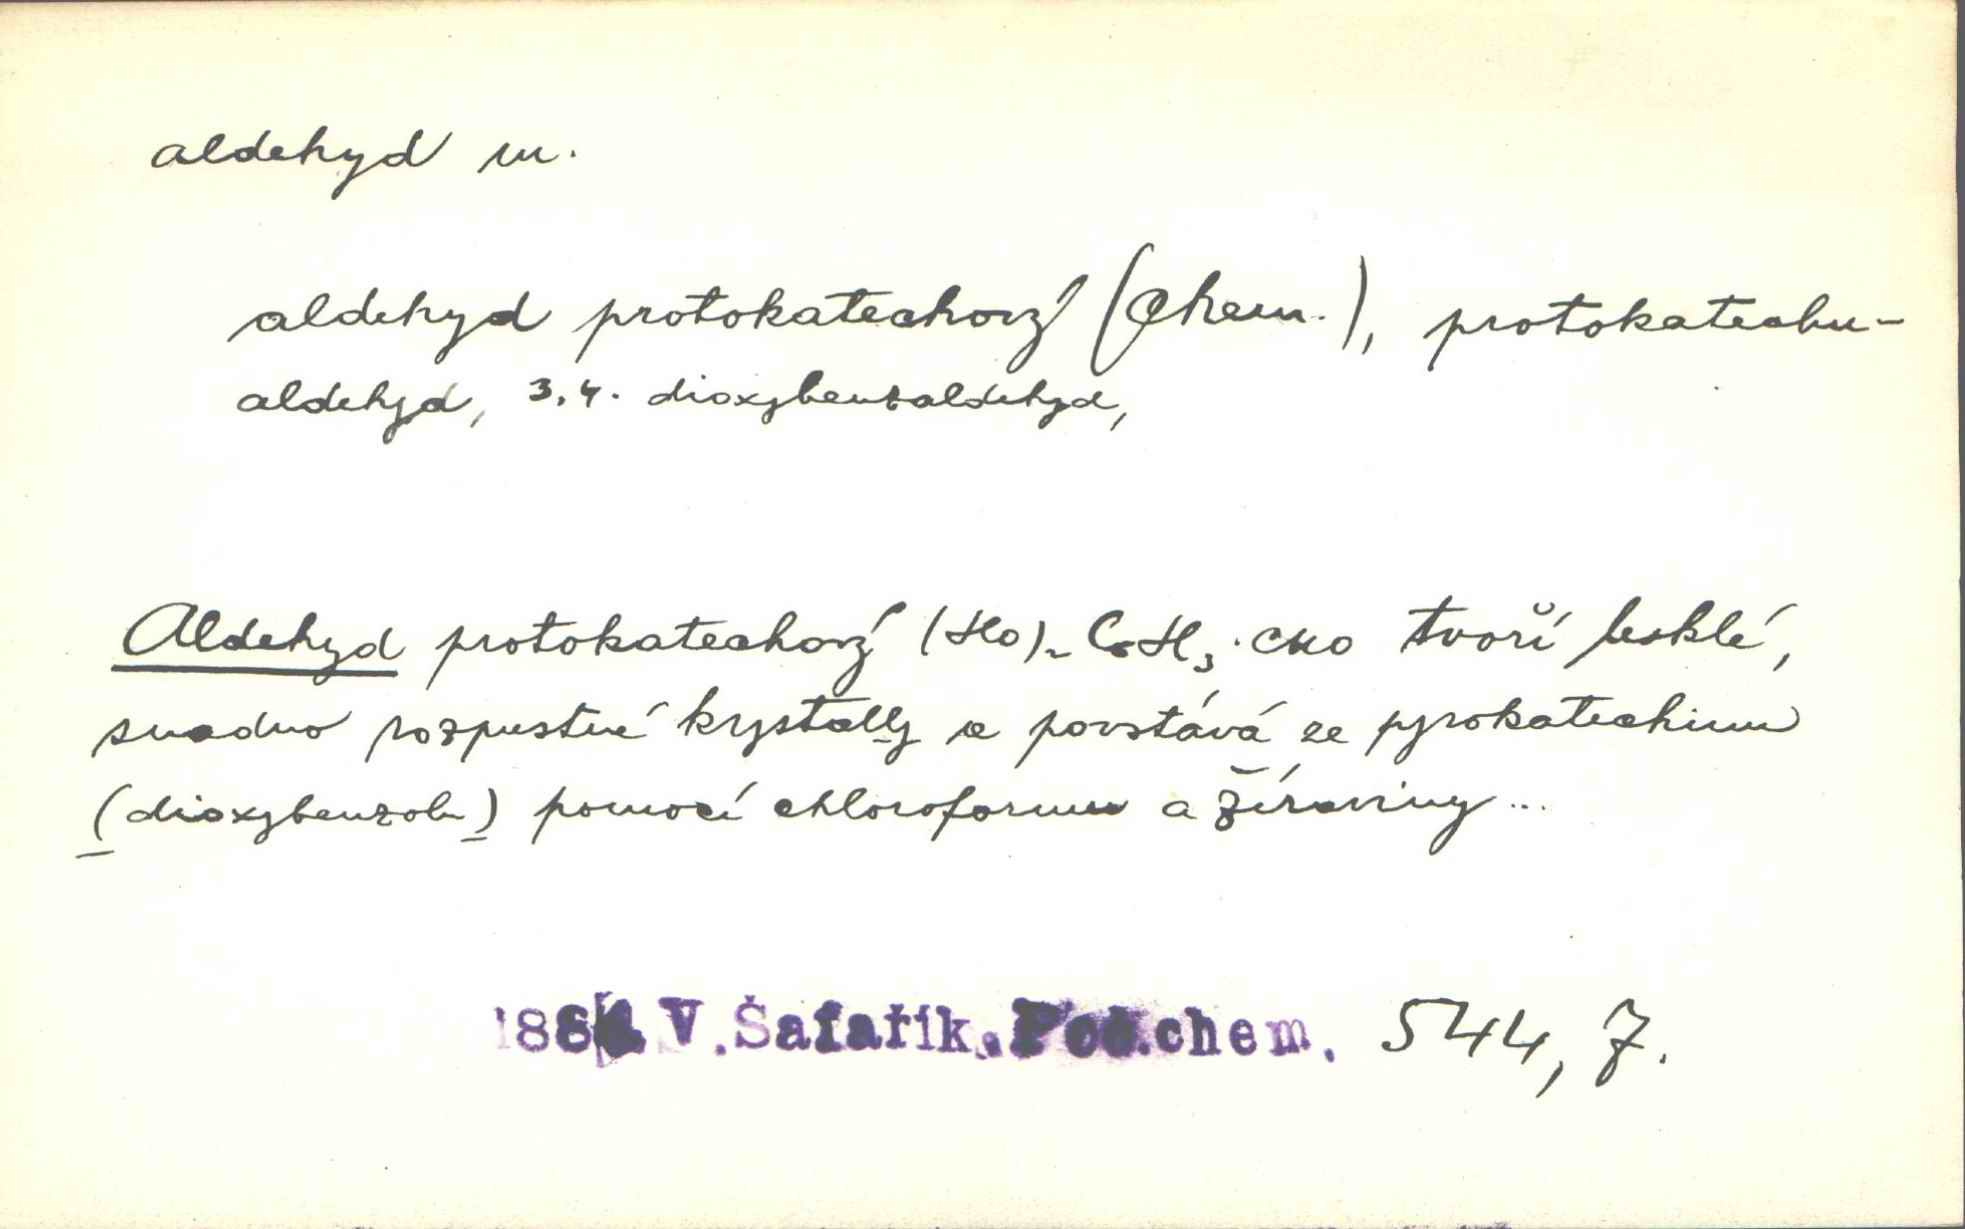 aldehyd m.
aldehyd protokatechový (Chem.), protokatechu-
aldehyd, 3.4. dioxybenzaldehyd,
Aldehyd protokatechový (HO)₂ C₆H₃·CHO tvoří lesklé,
snadno rozpustné krystally a povstává ze pyrokatechinu
(dioxybenzolu) pomocí chloroformu a žíraviny...
V. Šafařík. Poč.chem. 544, 7.